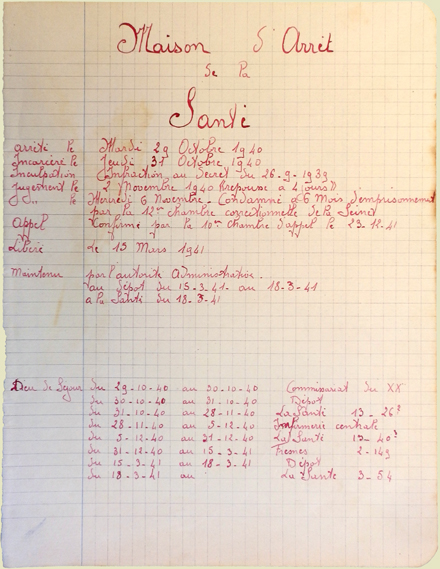 Maison d'Arrêt
de la
Santé
arrêté le Mardi 29 Octobre 1940
Incarcéré le Jeudi 31 Octobre 1940
Inculpation Infraction au Decret du 26-9-1939
jugement le 2 Novembre 1940 (repousse a 4 jours)
d°.. le Mercredi 6 Novembre. Condamné a 6 Mois d'emprisonnement
par la 12eme chambre correctionnelle de la Seine
Appel Confirmé par la 10eme Chambre d'appel le 23-12-41
Libéré Le 15 Mars 1941
Maintenu par l'autorité Administrative.
au Dépot du 15-3-41 au 18-3-41
a la Santé du 18-3-41
Lieu de Sejour du 29-10-40 au 30-10-40 Commissariat du XX
du 30-10-40 au 31-10-40 Dépot
du 31-10-40 au 28-11-40 La Santé 13-26
du 28-11-40 au 5-12-40 Infirmerie centrale
du 5-12-40 au 31-12-40 La Santé 13-40
du 31-12-40 au 15-3-41 Fresnes 2-143
du 15-3-41 au 18-3-41 Dépot
du 18-3-41 au La Santé 3-54